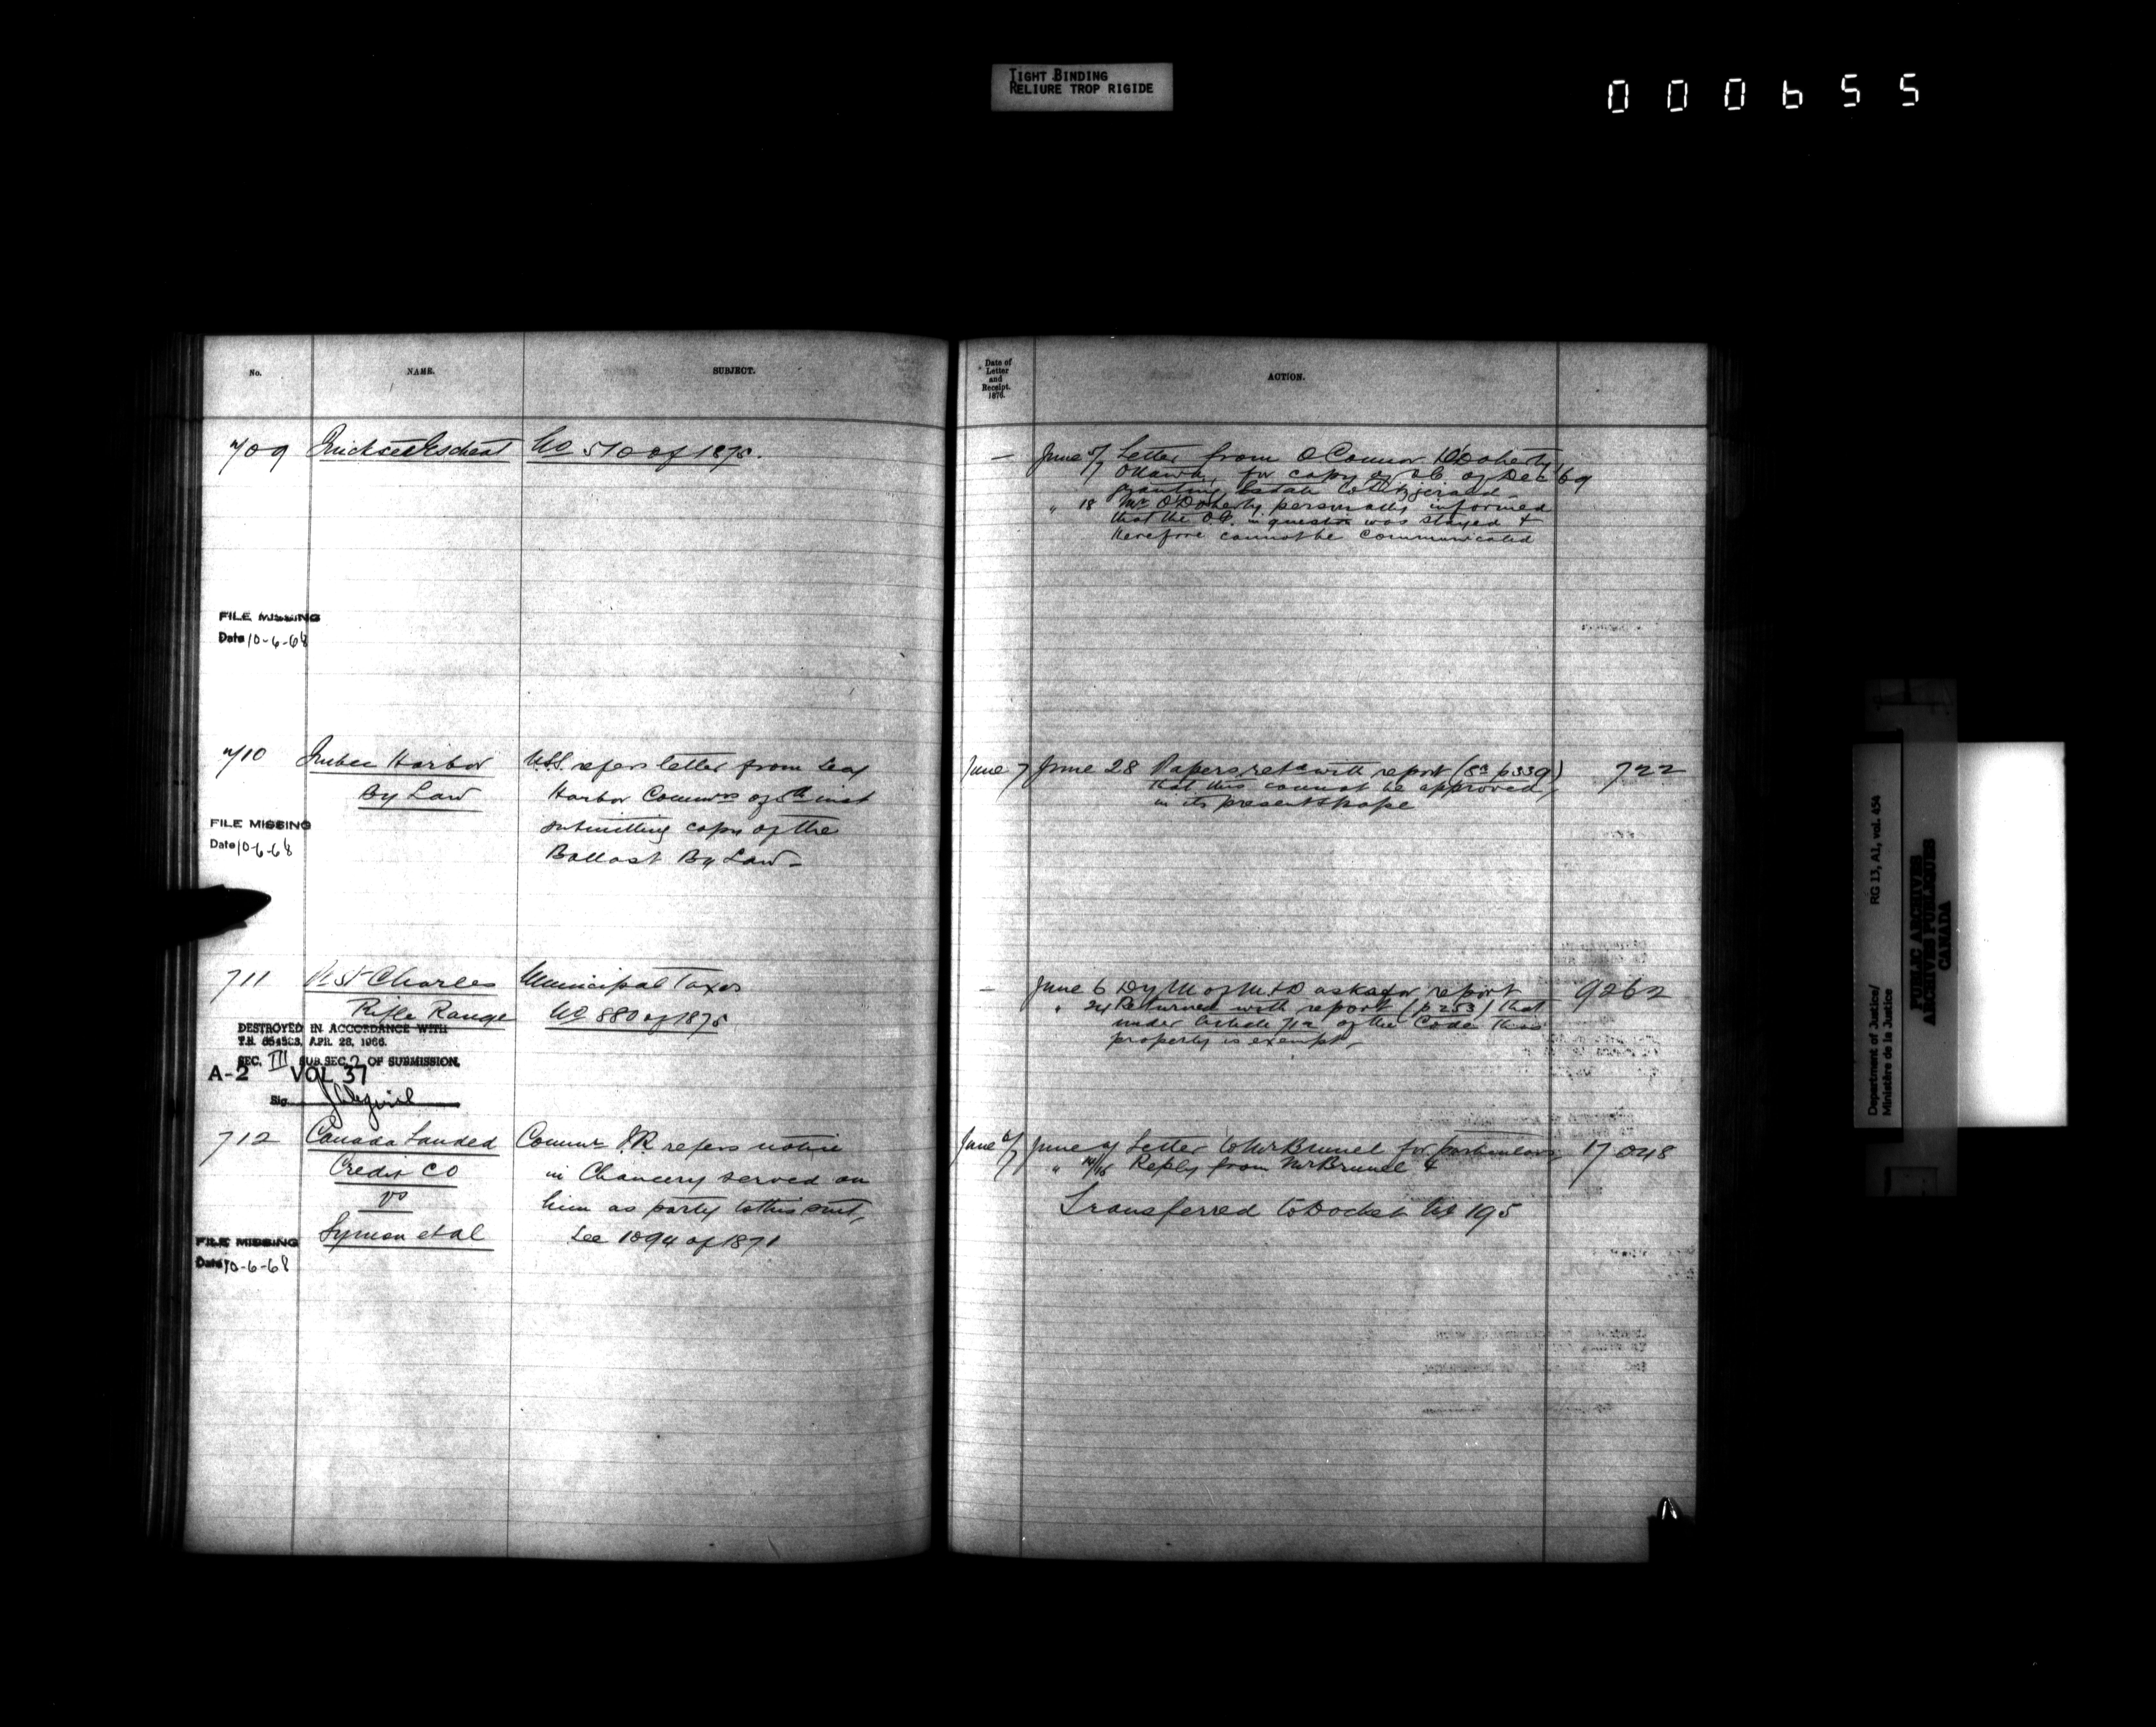 TIGHT BINDING
RELIURE TROP RIGIDE
000655
No.
NAME.
SUBJECT.
Date of
Letter
and
Receipt.
1876.
ACTION.
709
Escheat
No 510 of 1875.
— June 5/7 Letter from O'Connor
Ottawa, for copy of O.C. of Dec '69
granting Estate to Fitzgerald —
" 18 Mr O'Doherty personally informed
that the O.C. in question was stayed &
therefore cannot be communicated
FILE MISSING
Date 10-6-68
710
Quebec Harbor
By Law
refers letter from Secy
Harbor Commrs of 5th inst
submitting copy of the
Ballast By Law —
June 7
June 28 Papers retd with report (8a p 339)
that this cannot be approved
in its present shape
722
FILE MISSING
Date 10-6-68
711
Pt St Charles
Rifle Range
Municipal Taxes
No 880 of 1875
— June 6 Dy M of M & D asks for report
" 24 Returned with report (p 253) that
under Article 712 of the Code this
property is exempt —
9262
DESTROYED IN ACCORDANCE WITH
T.B. 654503, APR. 28, 1966.
SEC. III SUB SEC. 2 OF SUBMISSION.
A-2 VOL 37
Sig.
712
Canada Landed
Credit Co
vs
Symon et al
Commr I.R. refers notice
in Chancery served on
him as party to this suit,
See 1094 of 1871
June
June 9 Letter to Mr Brunel for particulars
" 14/15 Reply from Mr Brunel
Transferred to Docket No 195
17 048
FILE MISSING
Date 10-6-68
Department of Justice/
Ministère de la Justice
RG 13, A1, vol. 454
PUBLIC ARCHIVES
ARCHIVES PUBLIQUES
CANADA